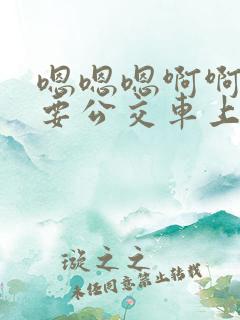 嗯嗯嗯啊啊
要公交車上
璇之之
未经同意禁止转载